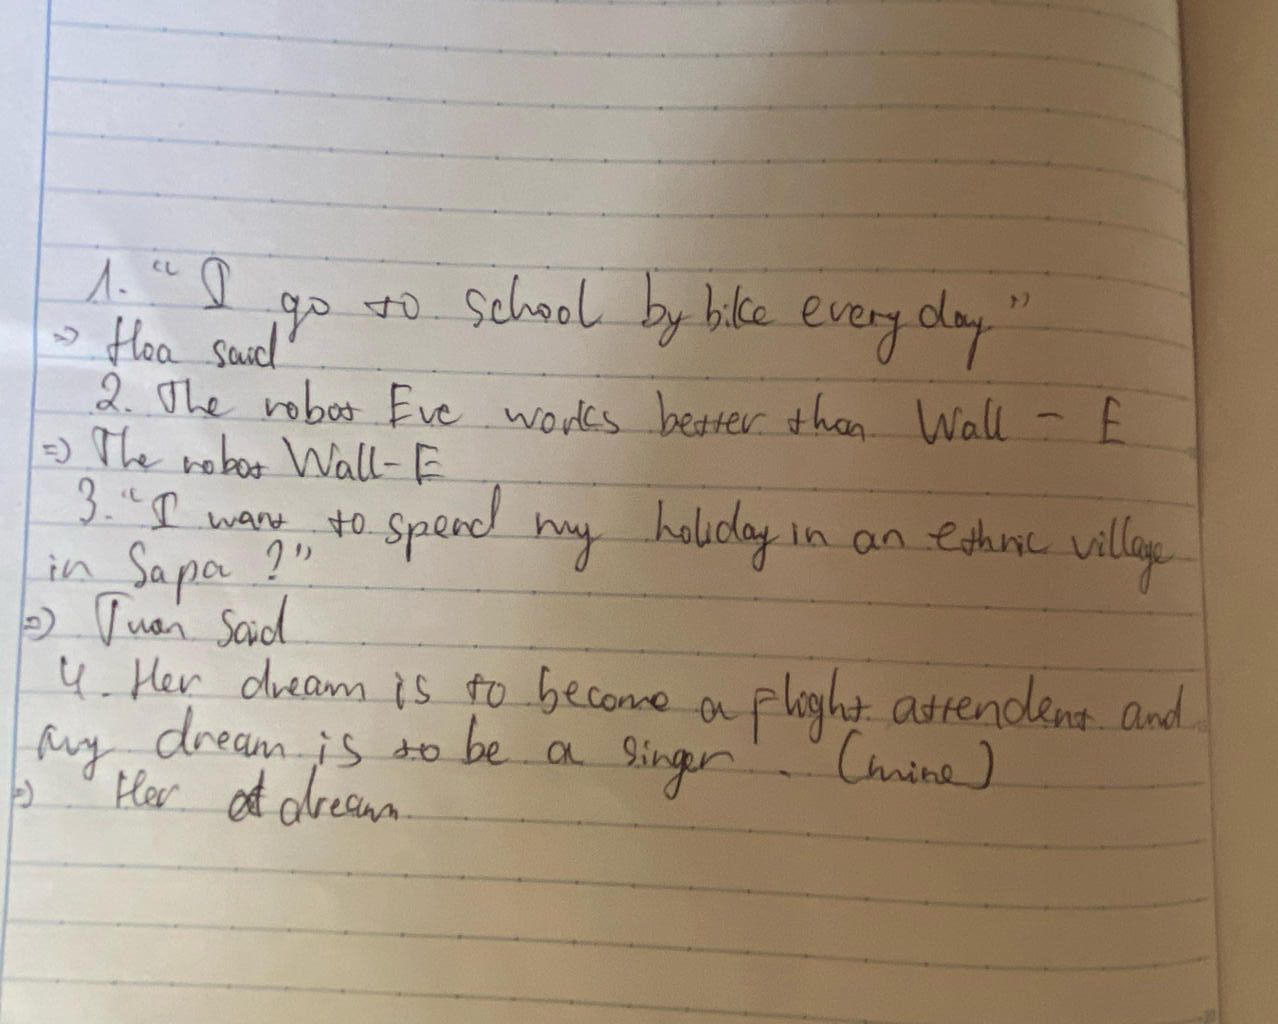 1. "I go to school by bike every day"
=> Hoa said
2. The robot Eve works better than Wall - E
=> The robot Wall-E
3. "I want to spend my holiday in an ethnic village
in Sapa ?"
=> Tuan said
4. Her dream is to become a flight attendent and
my dream is to be a singer. (mine)
=> Her dream